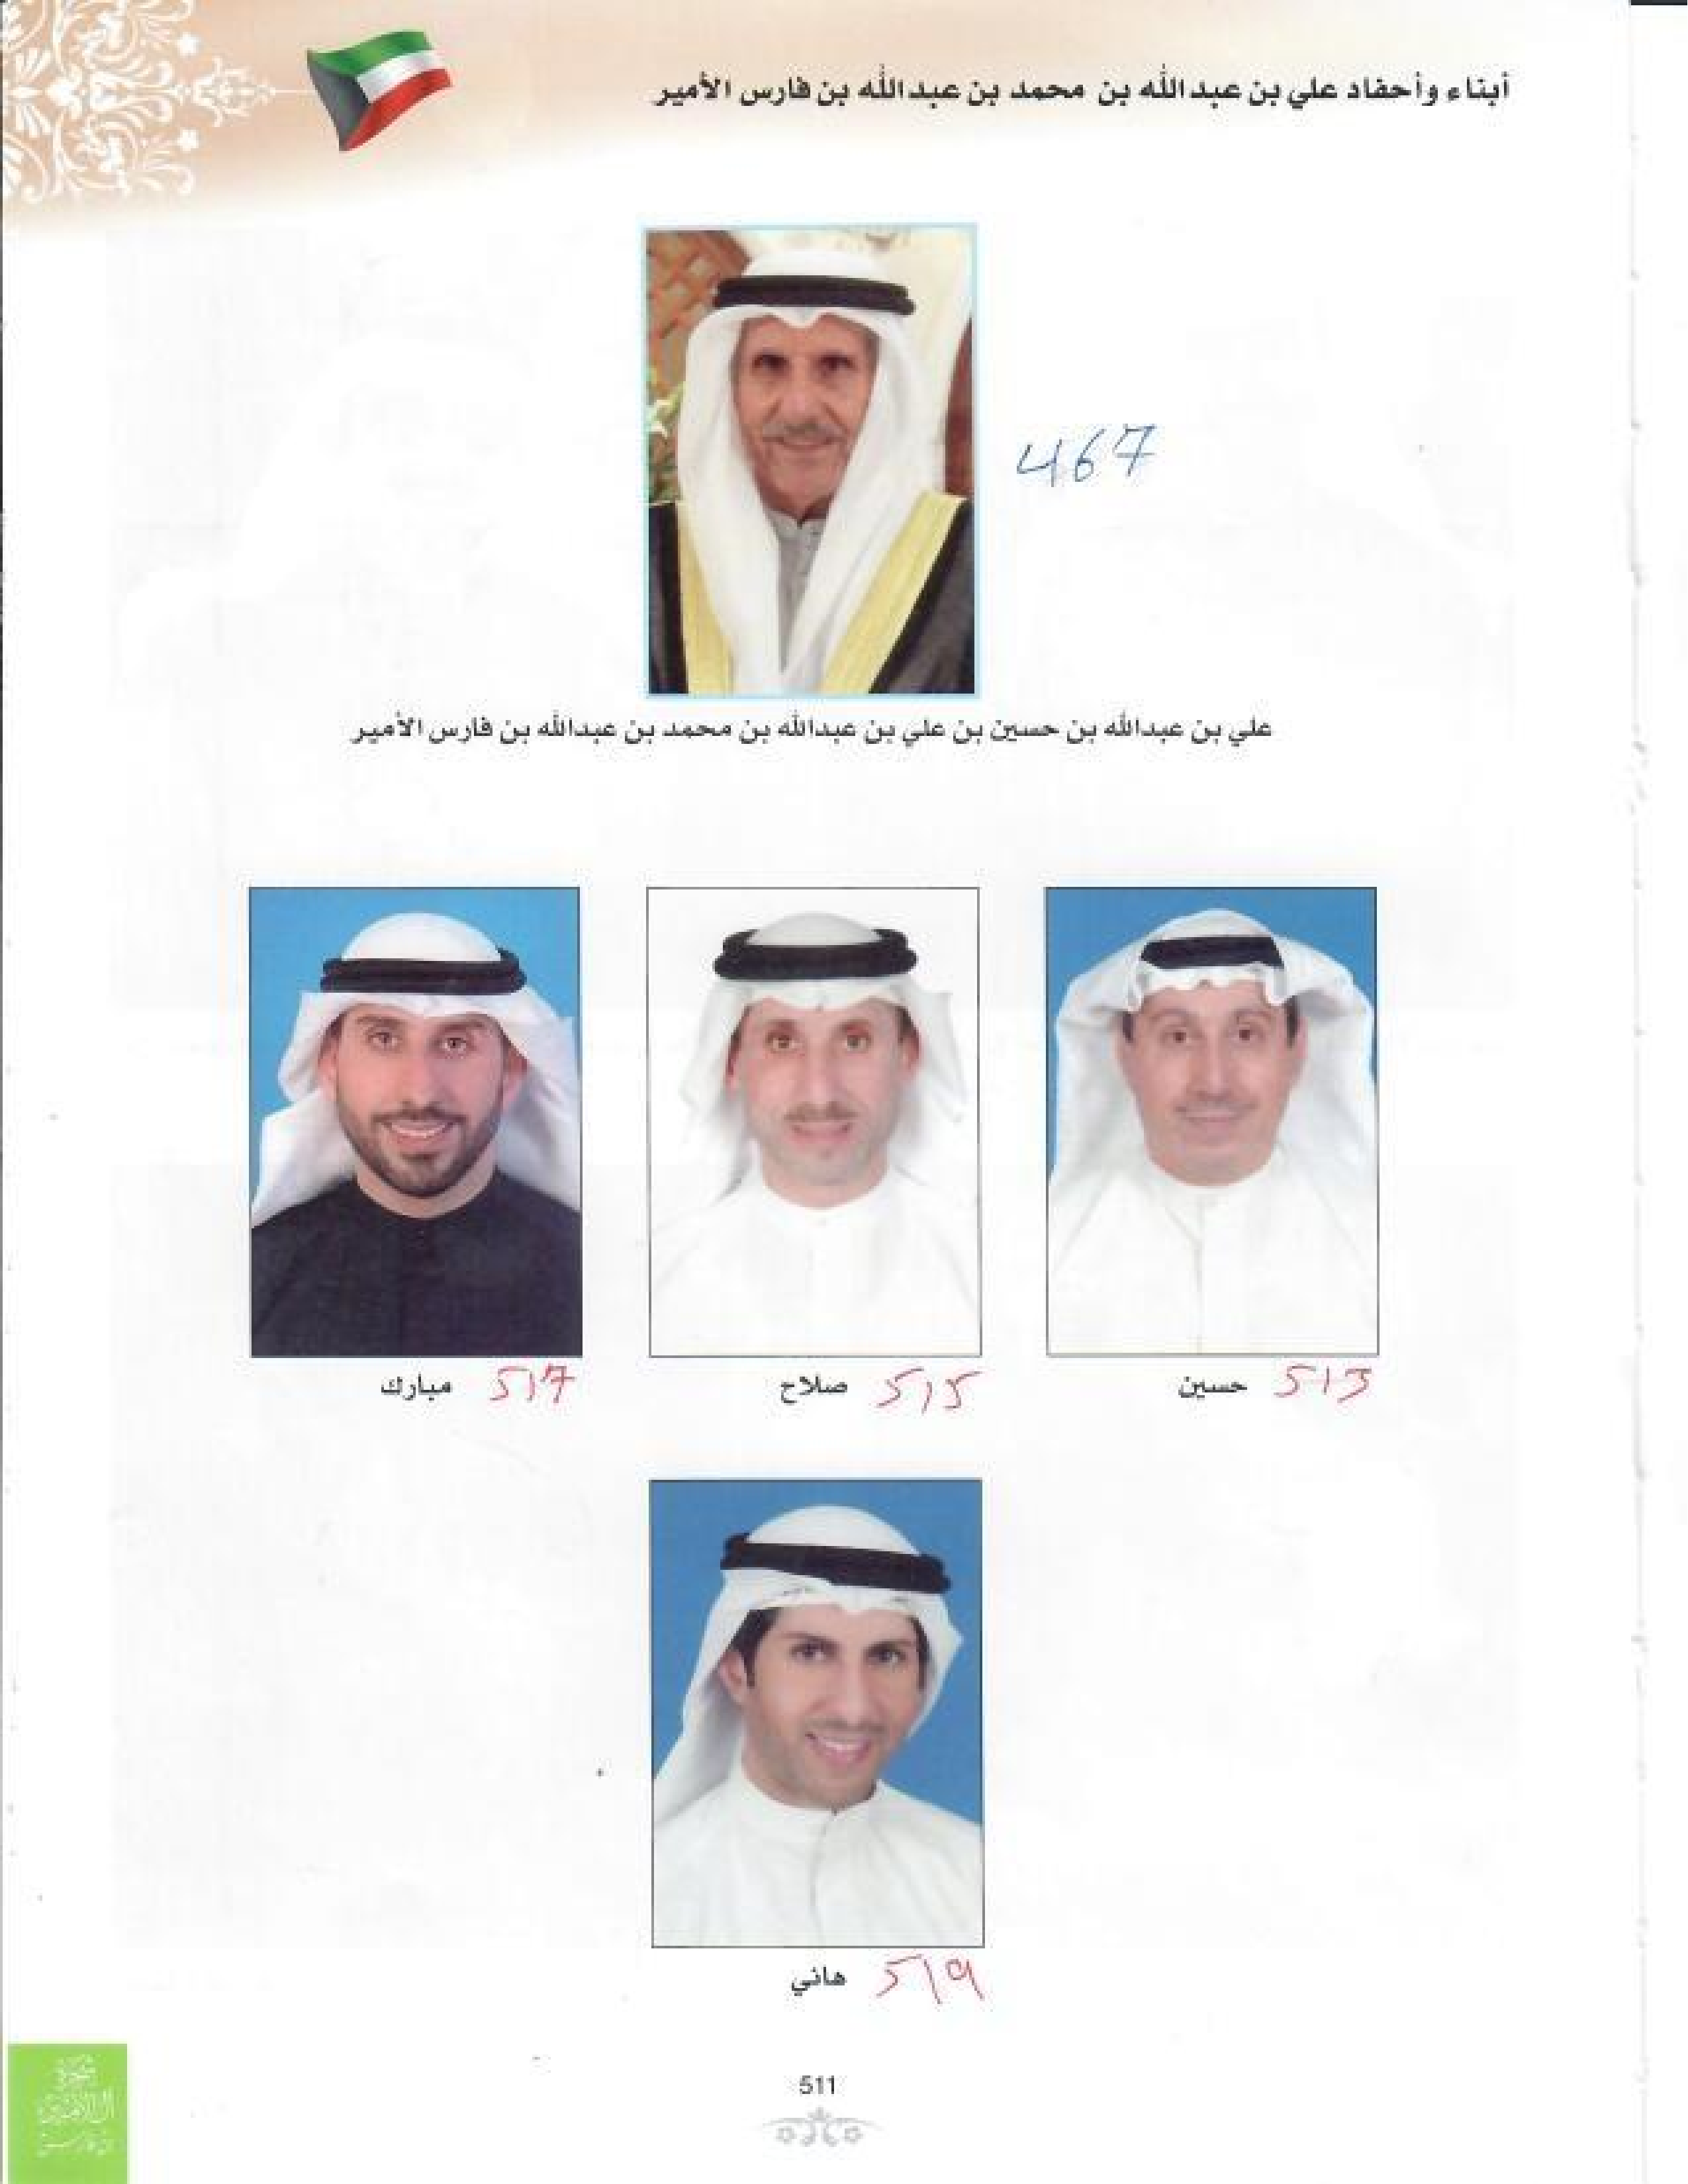 أبناء وأحفاد علي بن عبدالله بن محمد بن عبدالله بن فارس الأمير
467
علي بن عبدالله بن حسين بن علي بن عبدالله بن محمد بن عبدالله بن فارس الأمير
513 حسين
515 صلاح
517 مبارك
519 هاني
511